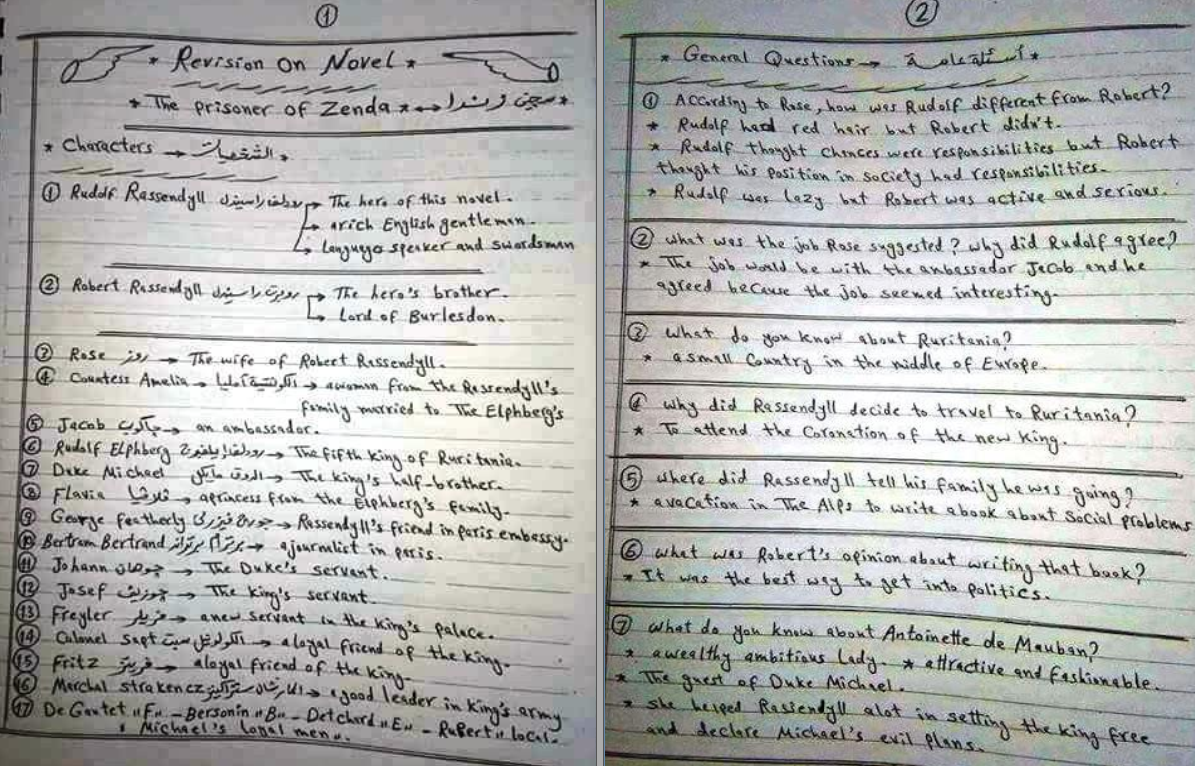 ①
* Revision on Novel *
* The prisoner of Zenda * ↔ سجين زندا *
* Characters → الشخصيات *
① Rudolf Rassendyll رودلف راسيندل → The hero of this novel.
→ arich English gentleman.
→ Language speaker and swordsman
② Robert Rassendyll روبرت راسيندل → The hero's brother.
→ Lord of Burlesdon.
③ Rose روز → The wife of Robert Rassendyll.
④ Countess Amelia → الكونتيسة أمليا → awoman from the Rassendyll's
family married to The Elphberg's
⑤ Jacob جاكوب → an ambassador.
⑥ Rudolf Elphberg رودلف إيلفبرج → The fifth king of Ruritania.
⑦ Duke Michael الدوق مايكل → The king's half-brother.
⑧ Flavia فلافيا → aprincess from the Elphberg's family.
⑨ George featherly جورج فيزرلى → Rassendyll's friend in paris embassy.
⑩ Bertram Bertrand برترام برتراند → ajournalist in paris.
⑪ Johann جوهان → The Duke's servant.
⑫ Josef جوزيف → The king's servant.
⑬ Freyler فريلر → anew servant in the king's palace.
⑭ Colonel Sapt الكولونيل سبت → aloyal friend of the king.
⑮ Fritz فريتز → aloyal friend of the king.
⑯ Marchal strakencz المارشال ستراكينز → agood leader in King's army
⑰ De Gautet "F" - Bersonin "B" - Detchard "E" - Rupert "local.
* Michael's loyal men".
②
* General Questions → أسئلة عامة *
① According to Rose, how was Rudolf different from Robert?
* Rudolf had red hair but Robert didn't.
* Rudolf thought chances were responsibilities but Robert
thought his position in society had responsibilities.
* Rudolf was lazy but Robert was active and serious.
② what was the job Rose suggested? why did Rudolf agree?
* The job would be with the anbassador Jacob and he
agreed because the job seemed interesting.
③ What do you know about Ruritania?
* asmall Country in the middle of Europe.
④ why did Rassendyll decide to travel to Ruritania?
* To attend the Coronation of the new King.
⑤ where did Rassendyll tell his family he was going?
* avacation in The Alps to write abook about Social problems
⑥ what was Robert's opinion about writing that book?
* It was the best way to get into politics.
⑦ what do you know about Antoinette de Mauban?
* awealthy ambitious Lady. * attractive and fashionable.
* The guest of Duke Michael.
* she helped Rassendyll alot in setting the king free
and declare Michael's evil plans.